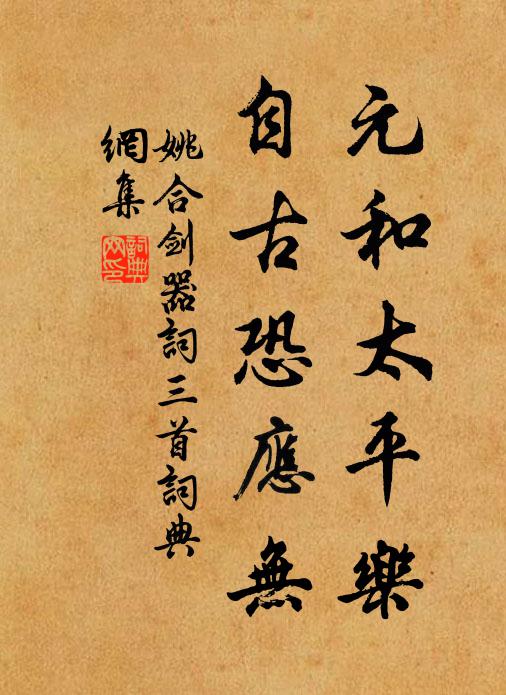 元和太平樂
自古恐應無
姚合劍器詞三首詞典
網集
詞典
网印